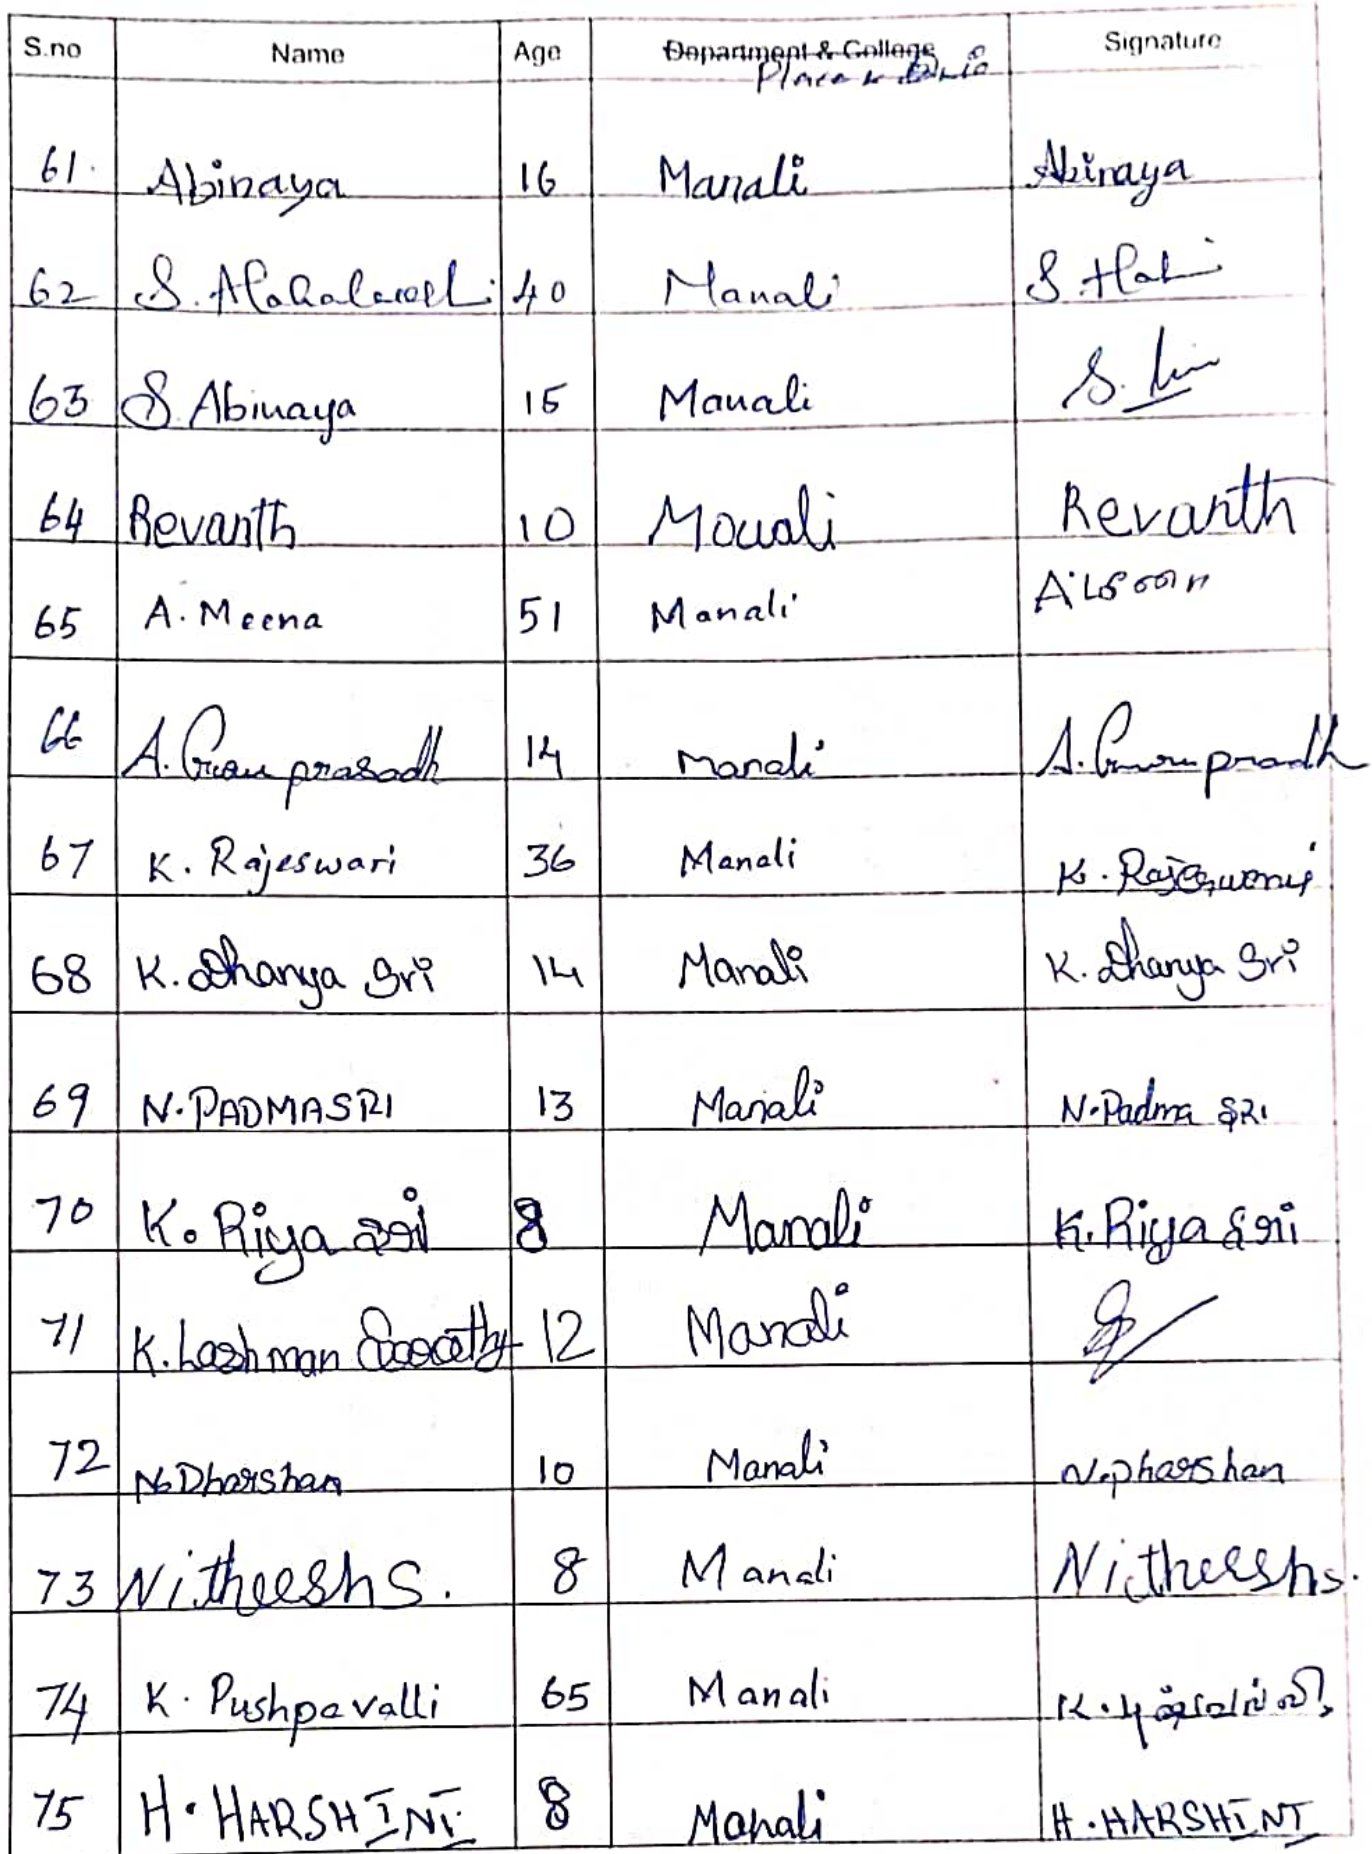 S.no Name Age Department & College Signature
Place
61. Abinaya 16 Manali Abinaya
62 S. 40 Manali S.
63 S. Abinaya 15 Manali S.
64 Revanth 10 Manali Revanth
65 A. Meena 51 Manali A. மீனா
66 A. Guru prasadh 14 Manali A.
67 K. Rajeswari 36 Manali K. Rajeswari
68 K. Dhanya Sri 14 Manali K. Dhanya Sri
69 N. PADMASRI 13 Manali N. Padma SRI
70 K. Riya Sri 8 Manali K. Riya Sri
71 K. Lashman 12 Manali
72 N. Dharshan 10 Manali N. Dharshan
73 Nitheesh S. 8 Manali Nitheesh S.
74 K. Pushpavalli 65 Manali K.
75 H. HARSHINI 8 Manali H. HARSHINI